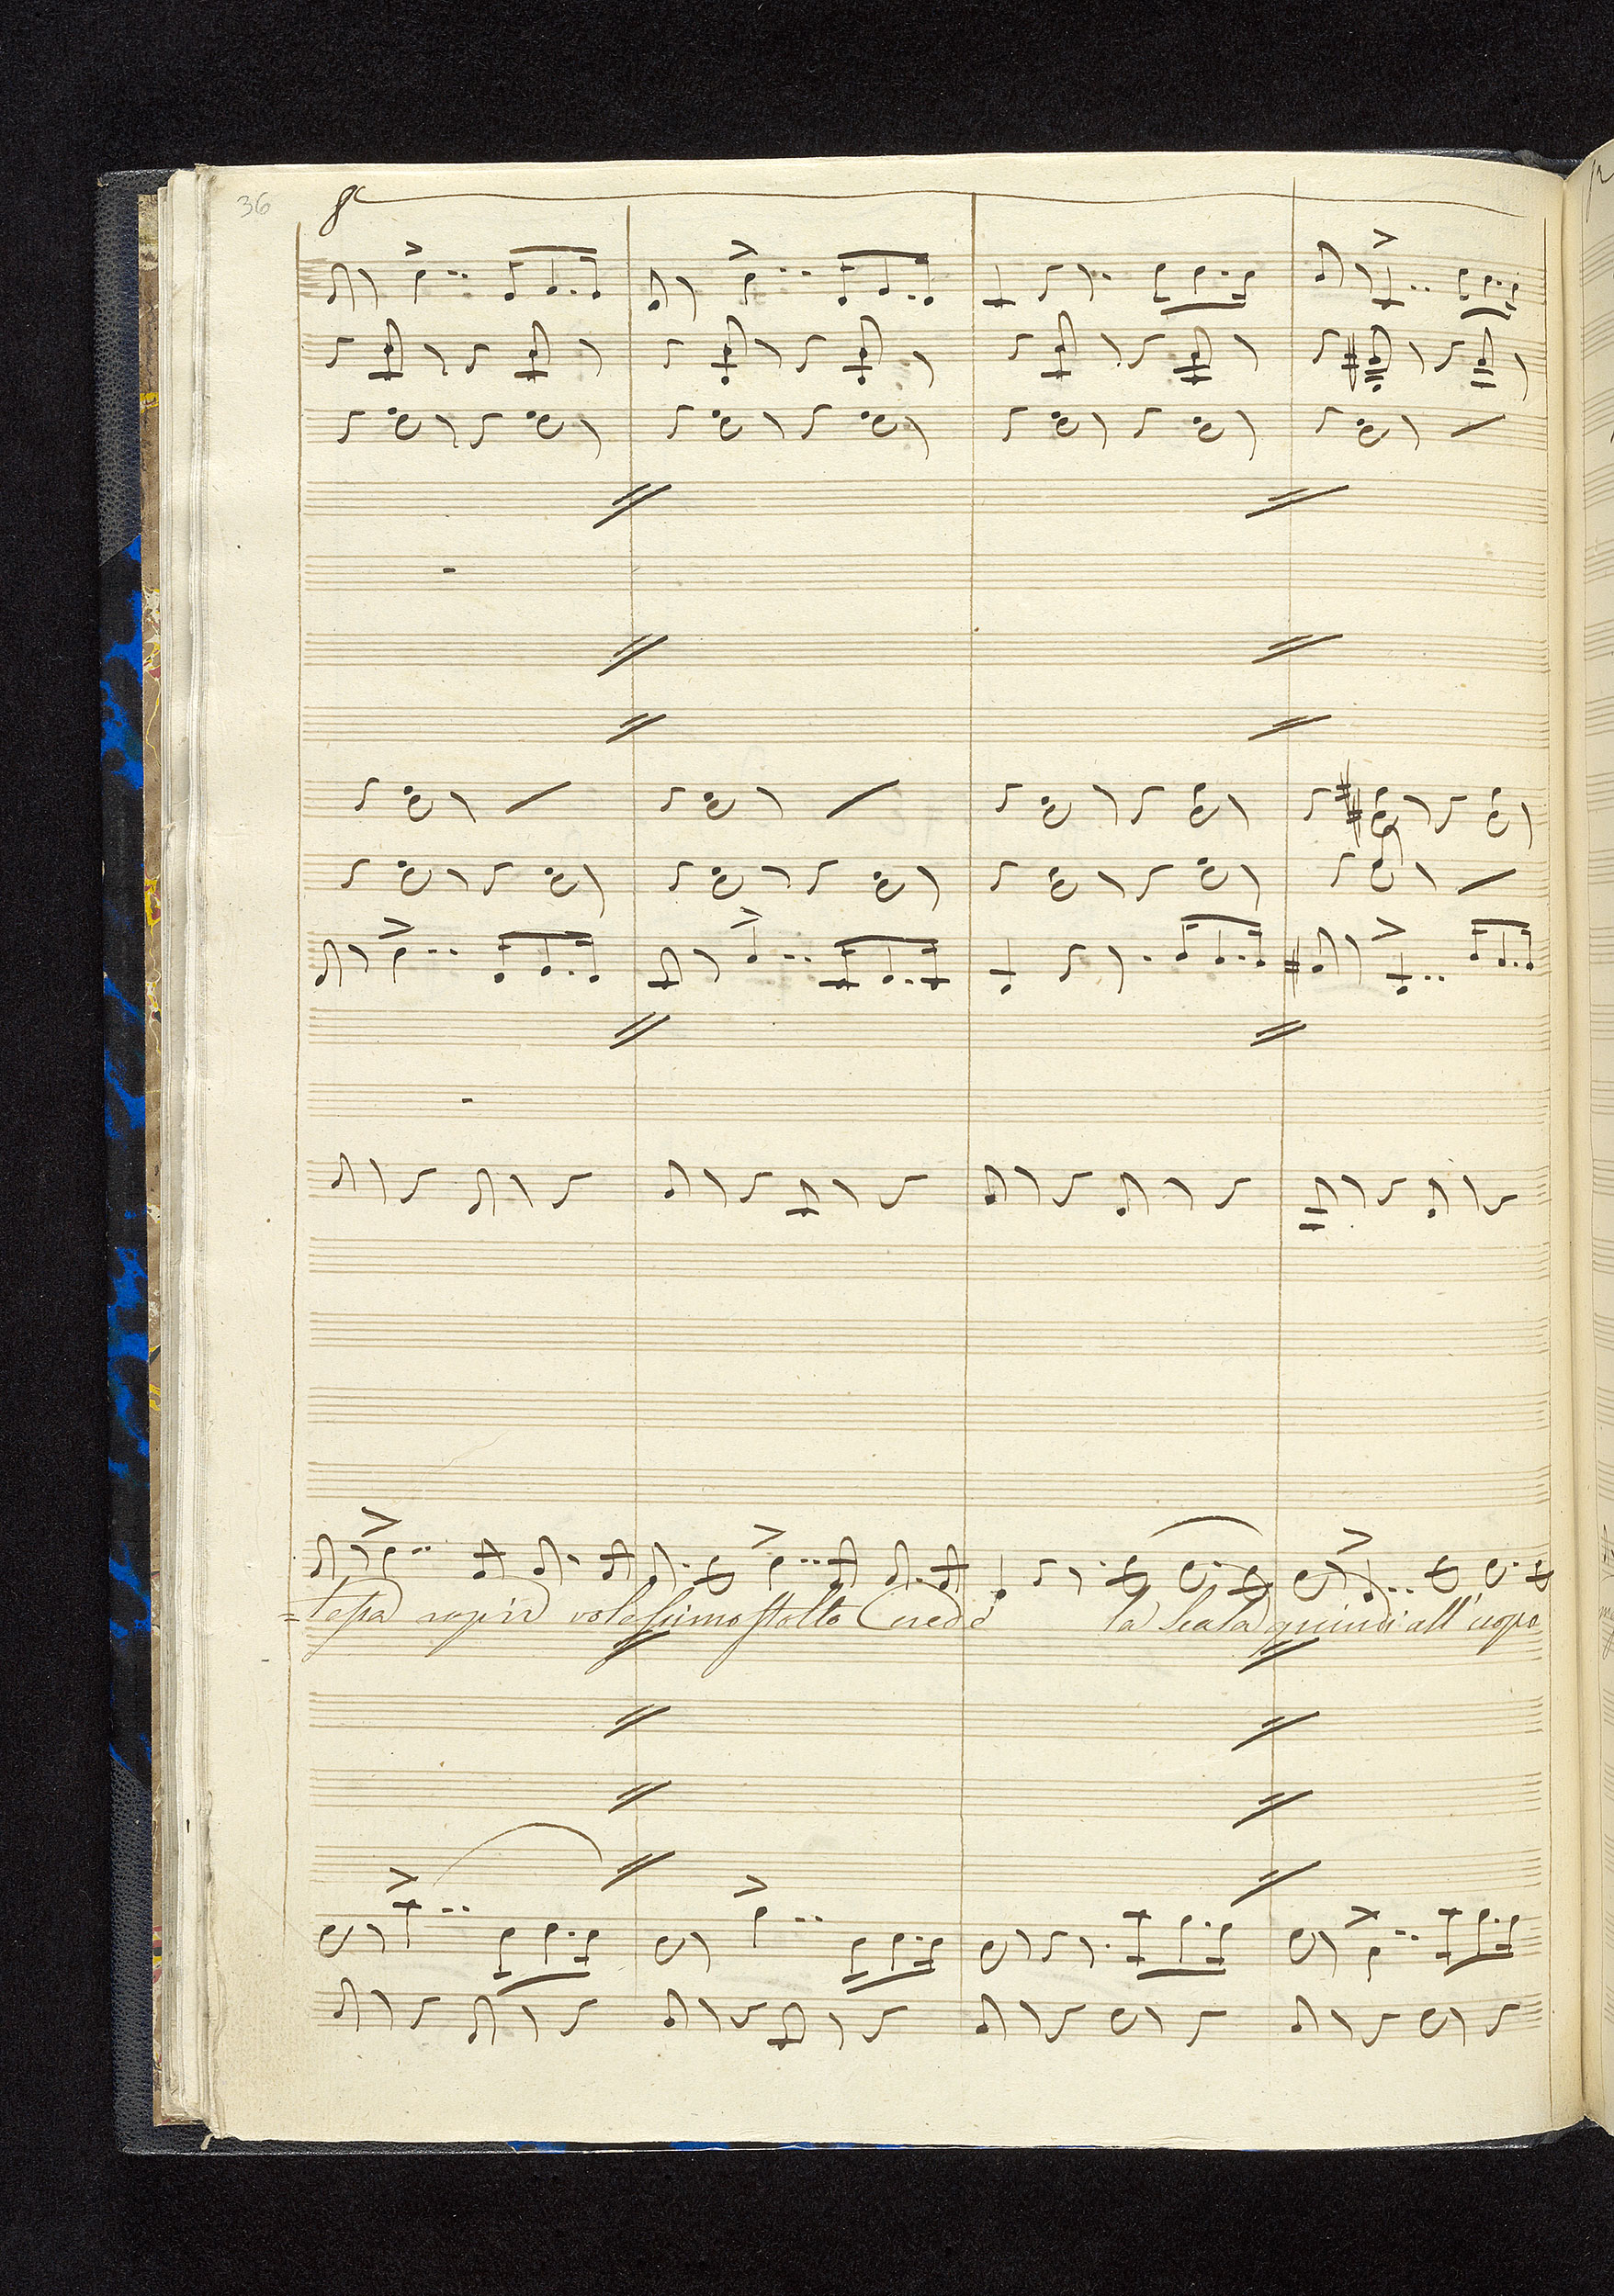 36
8a
=tessa rapir volessimo stolto Credè la scala quindi all'uopo